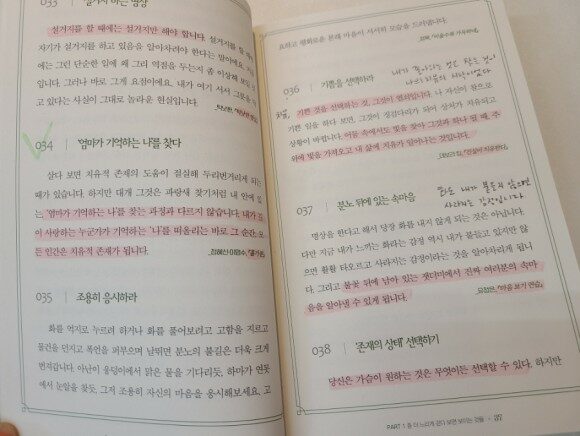 033 | 설거지 하는 명상
설거지를 할 때에는 설거지만 해야 합니다. 설거지를 할 때
자기가 설거지를 하고 있음을 알아차려야 한다는 말이에요. 처음
에는 그런 단순한 일에 왜 그리 역점을 두는지 좀 이상해 보일
니다. 그러나 바로 그게 요점이에요. 내가 여기 서서 그릇을
고 있다는 사실이 그대로 놀라운 현실입니다.
034 | '엄마가 기억하는 나'를 찾다
살다 보면 치유적 존재의 도움이 절실해 두리번거리게 되는
때가 있습니다. 하지만 대개 그것은 파랑새 찾기처럼 내 안에 있
는, '엄마가 기억하는 나'를 찾는 과정과 다르지 않습니다. 내가 깊
이 사랑하는 누군가가 기억하는 '나'를 떠올리는 바로 그 순간, 모
든 인간은 치유적 존재가 됩니다.
_정혜신·이명수, 『홀가분』
035 | 조용히 응시하라
화를 억지로 누르려 하거나 화를 풀어보려고 고함을 지르고
물건을 던지고 폭언을 퍼부으며 날뛰면 분노의 불길은 더욱 크게
번져갑니다. 아난이 웅덩이에서 맑은 물을 기다리듯, 하마가 연못
에서 눈알을 찾듯, 그저 조용히 자신의 마음을 응시해보세요. 고
요하고 평화로운 본래 마음이 서서히 모습을 드러냅니다.
036 | 기쁨을 선택하라
내가 좋아하는 것은 찾는 것이
나의 치유의 시작이었다
기쁜 것을 선택하는 것, 그것이 열쇠입니다. 나 자신이 참으로
기쁜 일을 하다 보면, 그것이 징검다리가 되어 상처가 치유되고
상황이 바뀝니다. 어둠 속에서도 빛을 찾아 그것과 하나 될 때, 주
위에 빛을 가져오고 내 삶에 치유가 일어나는 것입니다.
037 | 분노 뒤에 있는 속마음
화는 내가 붙들지 않으면
사라지는 감정입니다
명상을 한다고 해서 당장 화를 내지 않게 되는 것은 아닙니다.
다만 지금 내가 느끼는 화라는 감정 역시 내가 붙들고 있지 않으
면 활활 타오르고 사라지는 감정이라는 것을 알아차리게 됩니
다. 그리고 불꽃 뒤에 남아 있는 잿더미에서 진짜 여러분의 속마
음을 알아낼 수 있게 됩니다.
038 | '존재의 상태' 선택하기
당신은 가슴이 원하는 것은 무엇이든 선택할 수 있다. 하지만